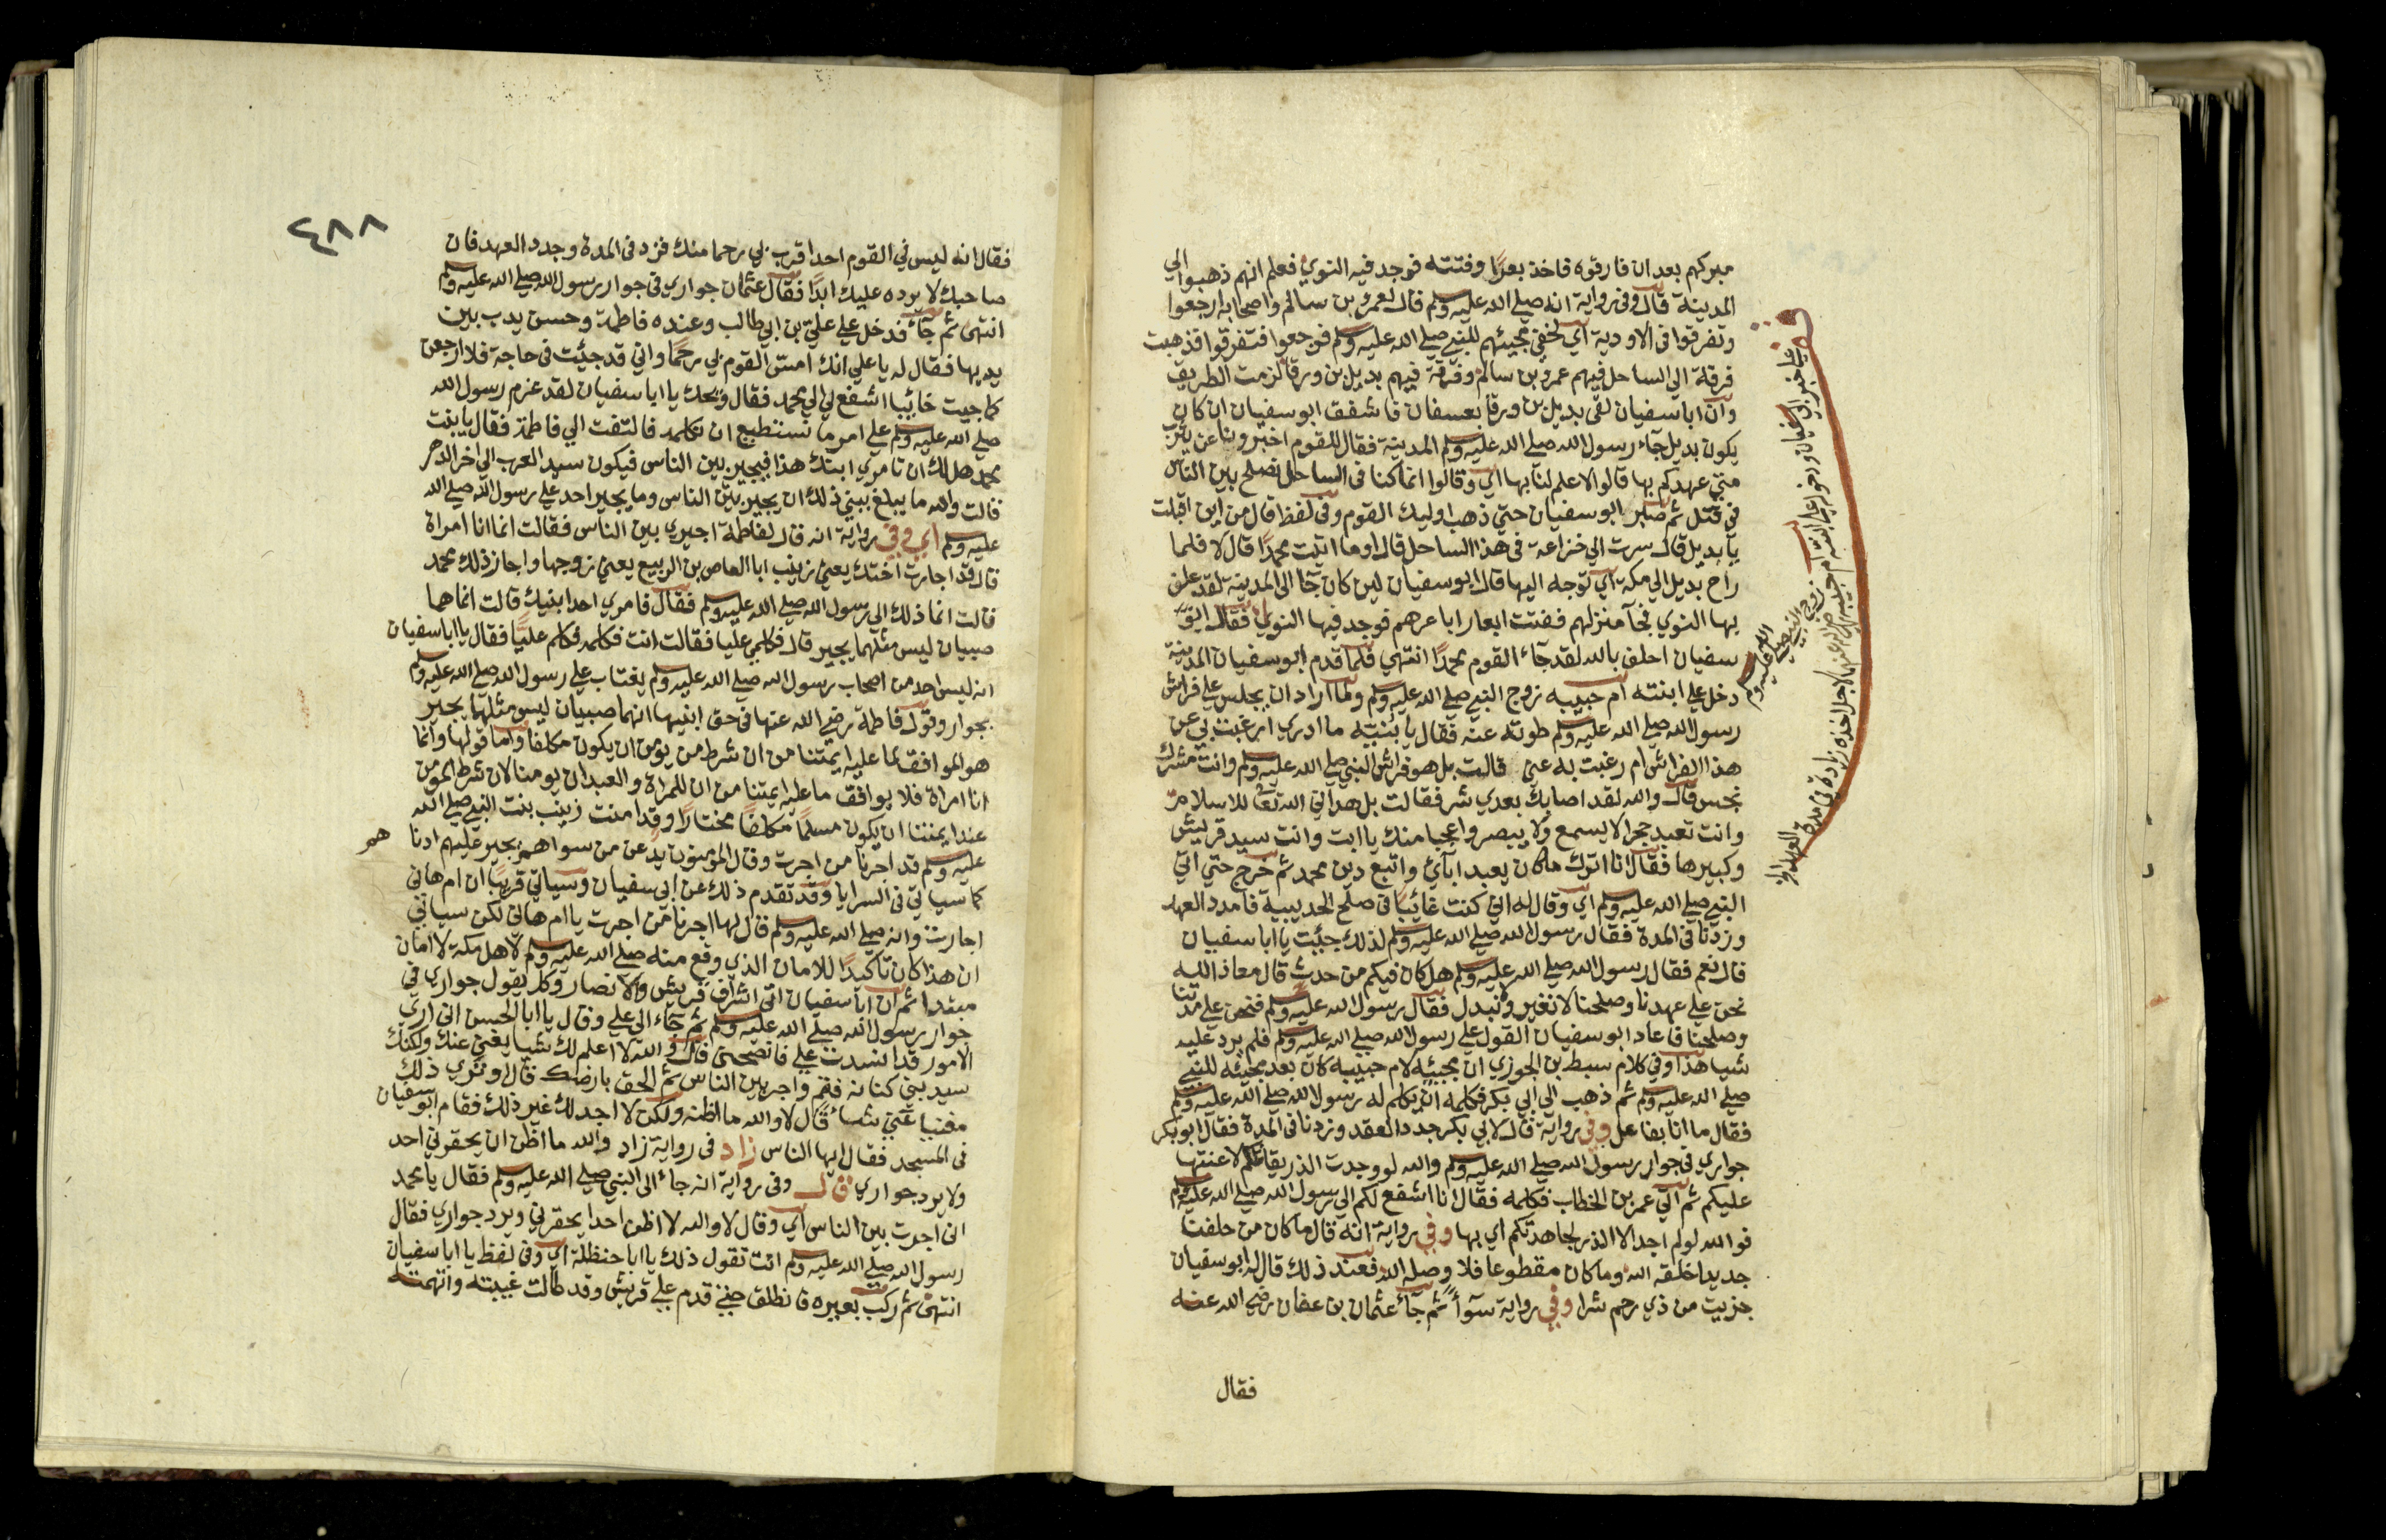 مبركهم بعد ان فارقوه فاخذ بعرًا وفتته فوجد فيه النوي فعلم انهم ذهبوا الي
المدينة قال وفي رواية انه صلي الله عليه وسلم قال لعمرو بن سالم واصحابه ارجعوا
وتفرقوا في الاودية اي لخفي مجيئهم للنبي صلي الله عليه وسلم فرجعوا فتفرقوا فذهبت
فرقة الي الساحل فيهم عمرو بن سالم وفرقة فيهم بديل بن ورقا لزمت الطريق
وان ابا سفيان لقي بديل بن ورقا بعسفان فاشفق ابو سفيان ان كان
يكون بديل جاء رسول الله صلي الله عليه وسلم المدينة فقال للقوم اخبرونا عن يثرب
متي عهدكم بها قالوا لا علم لنا بها اي وقالوا انما كنا في الساحل نصلح بين الناس
في قتل ثم صبر ابو سفيان حتي ذهب اوليك القوم وفي لفظ قال من اين اقبلت
يا بديل قال سرت الي خزاعة في هذا الساحل قال اوما اتيت محمدًا قال لا فلما
راح بديل الي مكة اي توجه اليها قال ابو سفيان لين كان جا الي المدينة لقد علف
بها النوي فجآ منزلهم ففتت ابعار اباعرهم فوجد فيها النوي فقال ابو
سفيان احلف بالله لقد جآء القوم محمدًا انتهي فلما قدم ابو سفيان المدينة
دخل علي ابنته ام حبيبه زوج النبي صلي الله عليه وسلم ولما اراد ان يجلس علي فراش
رسول الله صلي الله عليه وسلم طوته عنه فقال يا بنيه ما ادري ارغبت بي عن
هذا الفراش ام رغبت به عني قالت بل هو فراش النبي صلي الله عليه وسلم وانت مشرك
نجس قال والله لقد اصابك بعدي شر فقالت بل هداني الله تعا للاسلام
وانت تعبد حجرا لا يسمع ولا يبصر واعجبا منك يا ابت وانت سيد قريش
وكبيرها فقال انا اترك ما كان يعبد ابآئي واتبع دين محمد ثم خرج حتي اتي
النبي صلي الله عليه وسلم اي وقال له اني كنت غائبا في صلح الحديبية فامدد العهد
وزدنا في المدة فقال رسول الله صلي الله عليه وسلم لذلك جيئت يا ابا سفيان
قال نعم فقال رسول الله صلي الله عليه وسلم هل كان فيكم من حدث قال معاذ الله
نحن علي عهدنا وصلحنا لا نغير ولا نبدل فقال رسول الله عليه وسلم فنحن علي مدتنا
وصلحنا فاعاد ابو سفيان القول علي رسول الله صلي الله عليه وسلم فلم يرد عليه
شيا هذا وفي كلام سبط بن الجوزي ان مجيئه لام حبيبه كان بعد مجيئه للنبي
صلي الله عليه وسلم ثم ذهب الي ابي بكر فكلمه ان يكلم له رسول الله صلي الله عليه وسلم
فقال ما انا بفاعل وفي رواية قال لابي بكر جدد العقد وزدنا في المدة فقال ابو بكر
جواري في جوار رسول الله صلي الله عليه وسلم والله لو وجدت الذر يقاتلكم لاعنتها
عليكم ثم اتي عمر بن الخطاب فكلمه فقال انا اشفع لكم الي رسول الله صلي الله عليه وسلم
فوالله لو لم اجد الا الذر لجاهدتكم اي بها وفي رواية انه قال ما كان من حلفنا
جديدا خلقه الله وما كان مقطوعا فلا وصله الله فعند ذلك قال له ابو سفيان
جزيت من ذي رحم شرا وفي رواية سوآ ثم جآء عثمان بن عفان رضي الله عنه
فقال
٤٨٨
فقال انه ليس في القوم احد اقرب بي رحما منك فزد في المدة وجدد العهد فان
صاحبك لا يرده عليك ابدًا فقال عثمان جواري في جوار رسول الله صلي الله عليه وسلم
انتهي ثم جآء فدخل علي علي بن ابي طالب وعنده فاطمة وحسن يدب بين
يديها فقال له يا علي انك امس القوم بي رحمًا واني قد جئت في حاجة فلا ارجعن
كما جيت خائبا اشفع لي الي محمد فقال ويحك يا ابا سفيان لقد عزم رسول الله
صلي الله عليه وسلم علي امر ما نستطيع ان نكلمه فالتفت الي فاطمة فقال يا بنت
محمد هل لك ان تامري ابنك هذا فيجير بين الناس فيكون سيد العرب الي اخر الدهر
قالت والله ما يبلغ ببني ذلك ان يجير بين الناس وما يجير احد علي رسول الله صلي الله
عليه وسلم اي وفي رواية انه قال لفاطمة اجيري بين الناس فقالت انما انا امراة
قال قد اجارت اختك يعني زينب ابا العاص بن الربيع يعني زوجها واجاز ذلك محمد
قالت انما ذلك الي رسول الله صلي الله عليه وسلم فقال فامري احد ابنيك قالت انما هما
صبيان ليس مثلهما يجير قال فكلمي عليا فقالت انت فكلمه فكلم عليًّا فقال يا ابا سفيان
انه ليس احد من اصحاب رسول الله صلي الله عليه وسلم يفتاب علي رسول الله صلي الله عليه وسلم
بجوار وقول فاطمة رضي الله عنها في حق ابنيها انهما صبيان ليس مثلهما يجير
هو الموافق لما عليه ايمتنا من ان شرط من يؤمن ان يكون مكلفا واما قولها وانما
انا امراة فلا يوافق ما عليه ايمتنا من ان للمراة والعبد ان يومنا لان شرط المومن
عند ايمتنا ان يكون مسلمًا مكلفًا مختارًا وقد امنت زينب بنت النبي صلي الله
عليه وسلم قد اجرنا من اجرت وقال المؤمنون يد عن من سواهم يجير عليهم ادنا هم
كما سياتي في السرايا وقد تقدم ذلك عن ابي سفيان وسياتي قريبًا ان ام هاني
اجارت وانه صلي الله عليه وسلم قال لها اجرنا من اجرت يا ام هاني لكن سياتي
ان هذا كان تاكيدًا للامان الذي وقع منه صلي الله عليه وسلم لاهل مكة لا امان
مبتدا ثم ان ابا سفيان اتي اشراف قريش والانصار وكل يقول جواري في
جوار رسول الله صلي الله عليه وسلم ثم جآء الي علي وقال يا ابا الحسن اني اري
الامور قد انسدت علي فانصحني قال والله لا اعلم لك شيا يغني عنك ولكنك
سيد بني كنانة فقم واجر بين الناس ثم الحق بارضك قال اوتري ذلك
مغنيا عني شيئا قال لا والله ما اظنه ولكن لا اجد لك غير ذلك فقام ابو سفيان
في المسجد فقال ايها الناس زاد في رواية زاد والله ما اظن ان يحقرني احد
ولا يرد جواري قال وفي رواية انه جاء الي النبي صلي الله عليه وسلم فقال يا محمد
اني اجرت بين الناس اي وقال لا والله لا اظن احدا يحقرني ويرد جواري فقال
رسول الله صلي الله عليه وسلم انت تقول ذلك يا ابا حنظلة اي وفي لفظ يا ابا سفيان
انتهي ثم ركب بعيره فانطلق حتي قدم علي قريش وقد طالت غيبته واتهمته